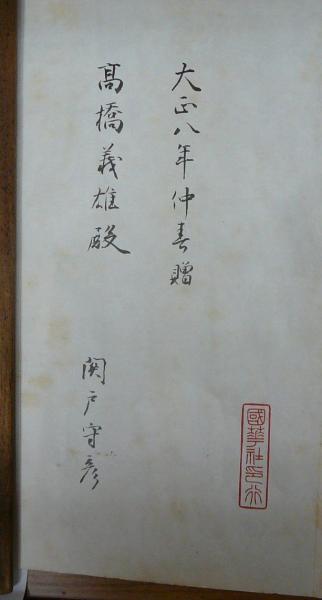 大正八年仲春贈
髙橋義雄殿
関戸守彦
國華社印行